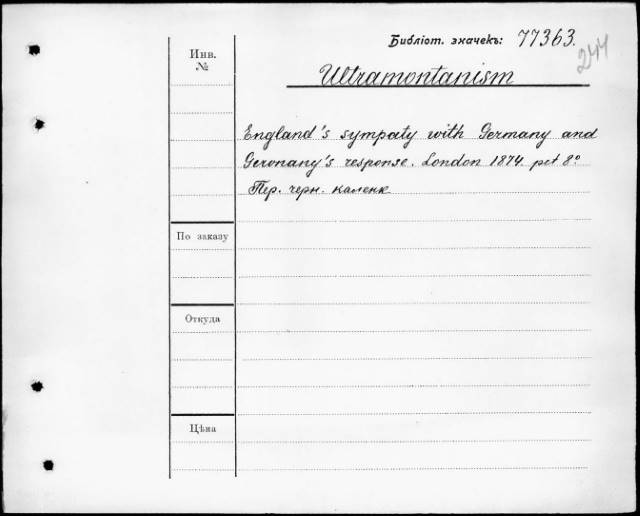 Библіот. значекъ: 77363.
244
Инв.
№
Ultramontanism
England's sympaty with Germany and
Geronany's response. London 1874. pet 8º
Пер. черн. каленк
По заказу
Откуда
Цѣна